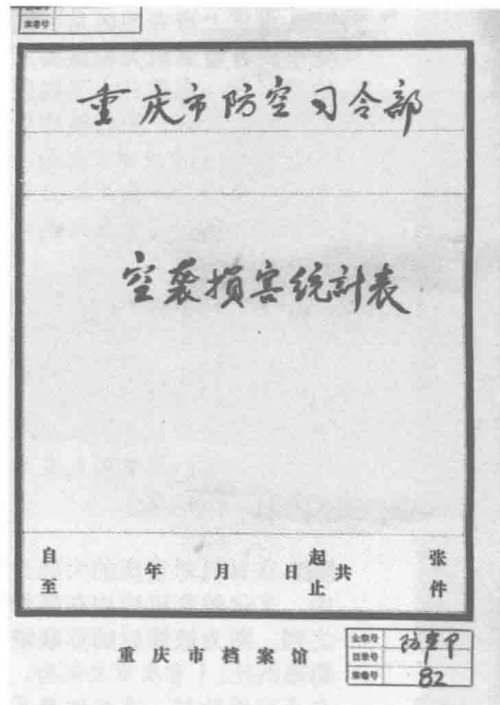 案卷号
重庆市防空司令部
空袭损害统計表
自 年 月 日起 共 张
至 止 件
重庆市档案馆
全宗号 防空
目录号
案卷号 82